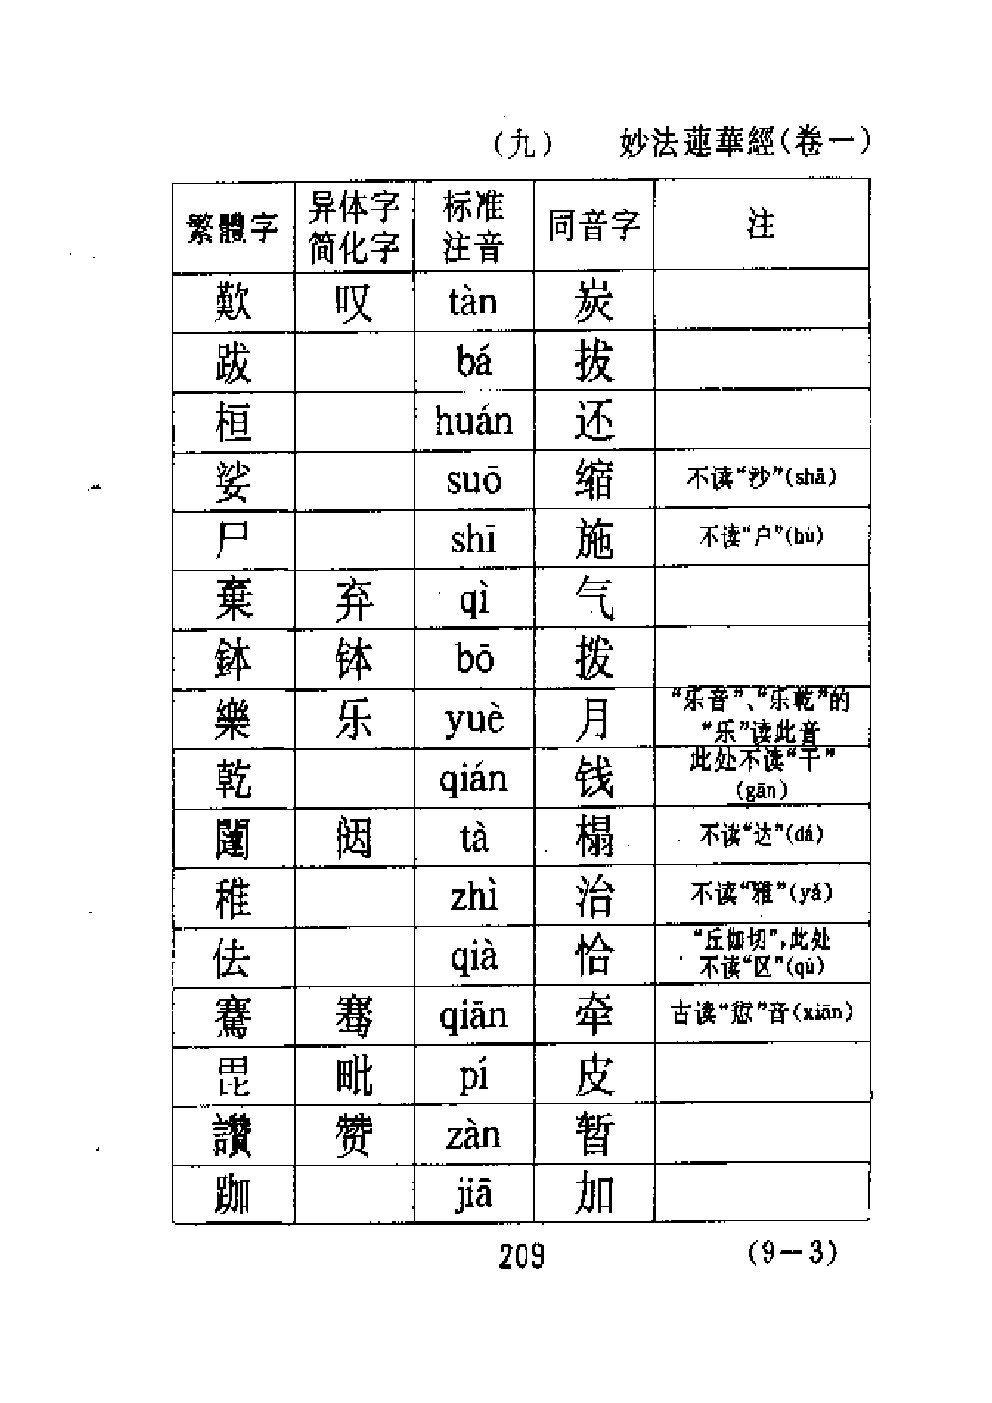 (九) 妙法蓮華經(卷一)
繁體字 异体字 简化字 标准注音 同音字 注
歎 叹 tàn 炭
跋 bá 拔
桓 huán 还
娑 suō 缩 不读“沙”(shā)
尸 shī 施 不读“户”(hù)
棄 弃 qì 气
鉢 钵 bō 拨
樂 乐 yuè 月 “乐音”、“乐乾”的“乐”读此音
乾 qián 钱 此处不读“干”(gān)
闥 闼 tà 榻 不读“达”(dá)
稚 zhì 治 不读“雅”(yǎ)
佉 qià 恰 “丘伽切”,此处不读“区”(qū)
騫 骞 qiān 牵 古读“掀”音(xiān)
毘 毗 pí 皮
讚 赞 zàn 暂
跏 jiā 加
209 (9—3)